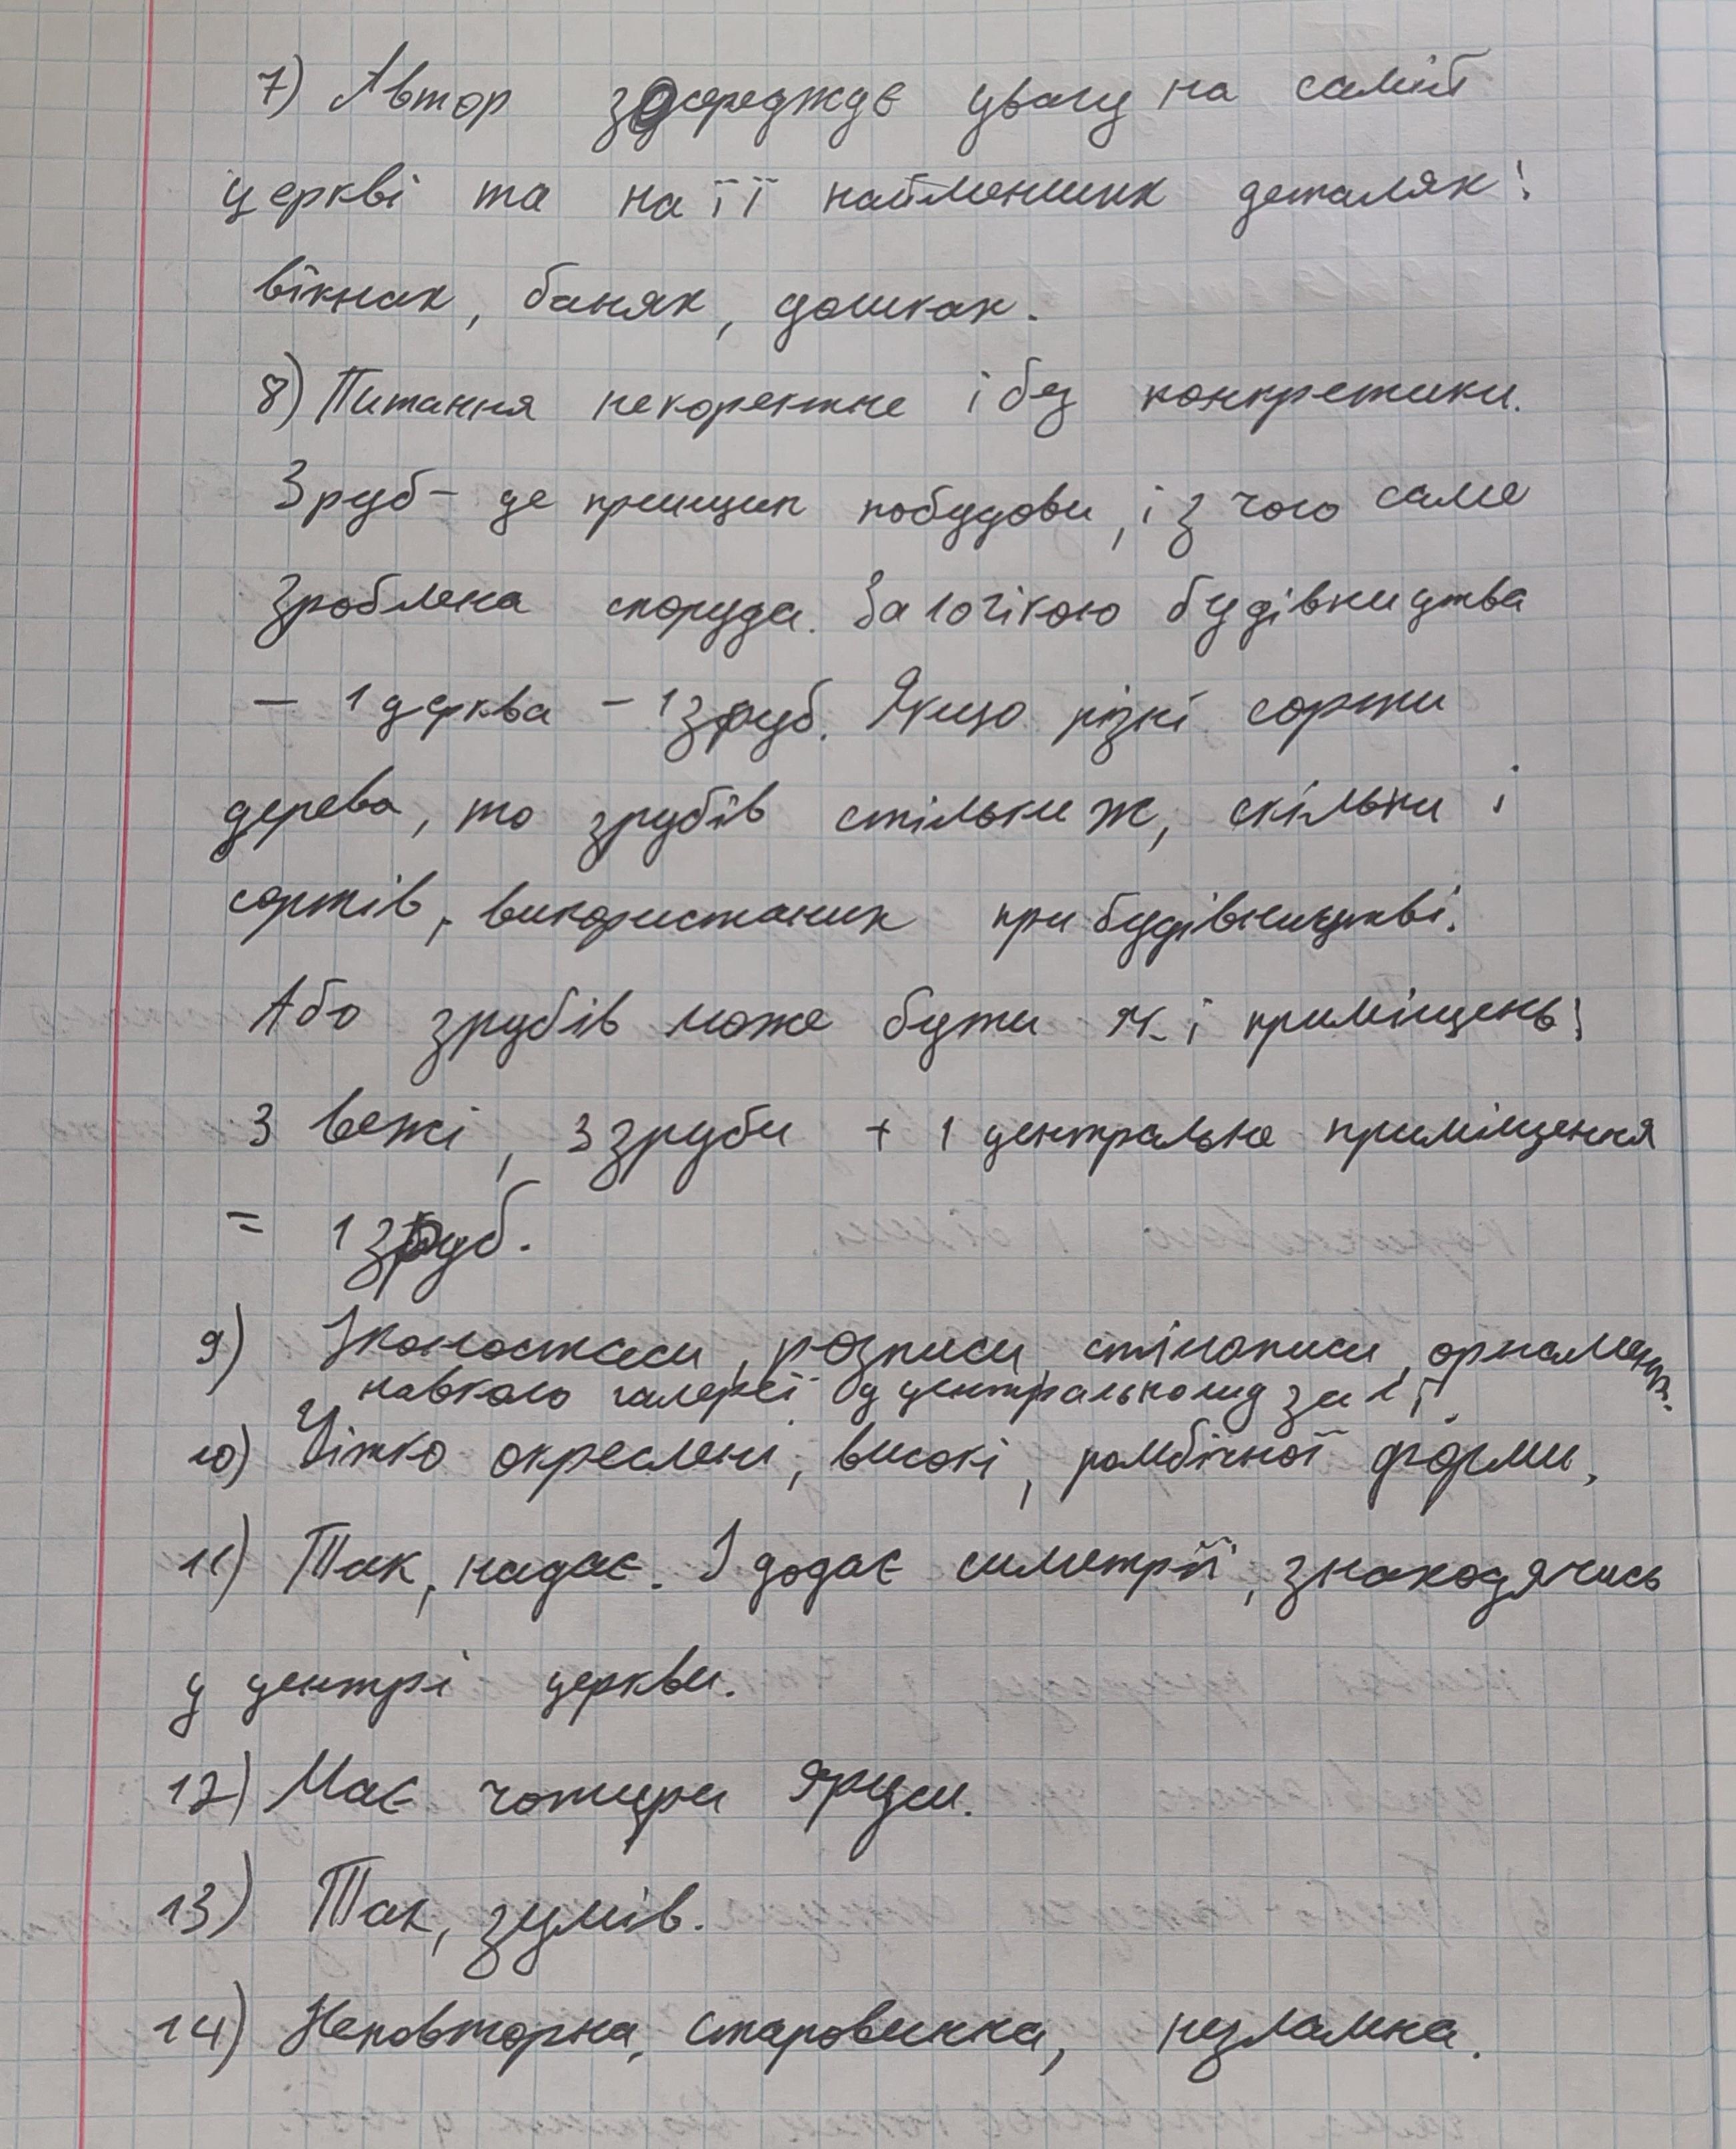 7) Автор зосереджує увагу на самій
церкві та на її найменших деталях:
вікнах, банях, дошках.
8) Питання некоректне і без конкретики.
Зруб - це принцип побудови, і з чого саме
зроблена споруда. За логікою будівництва
- 1 церква - 1 зруб. Якщо різні сорти
дерева, то зрубів стільки ж, скільки і
сортів, використаних при будівництві.
Або зрубів може бути як і приміщень:
3 вежі, 3 зруби + 1 центральне приміщення
= 1 зруб.
9) Іконостаси, розписи, стінописи, орнаменти
навколо галереї у центральному залі.
10) Чітко окреслені, високі, ромбічної форми.
11) Так, надає. І додає симетрії, знаходячись
у центрі церкви.
12) Має чотири яруси.
13) Так, зумів.
14) Неповторна, старовинна, незламна.